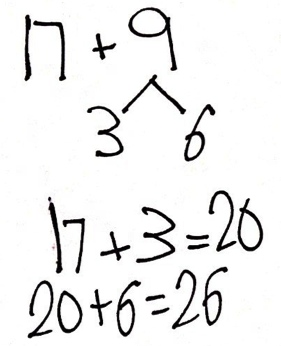 17 + 9
3 6
17+3=20
20+6=26